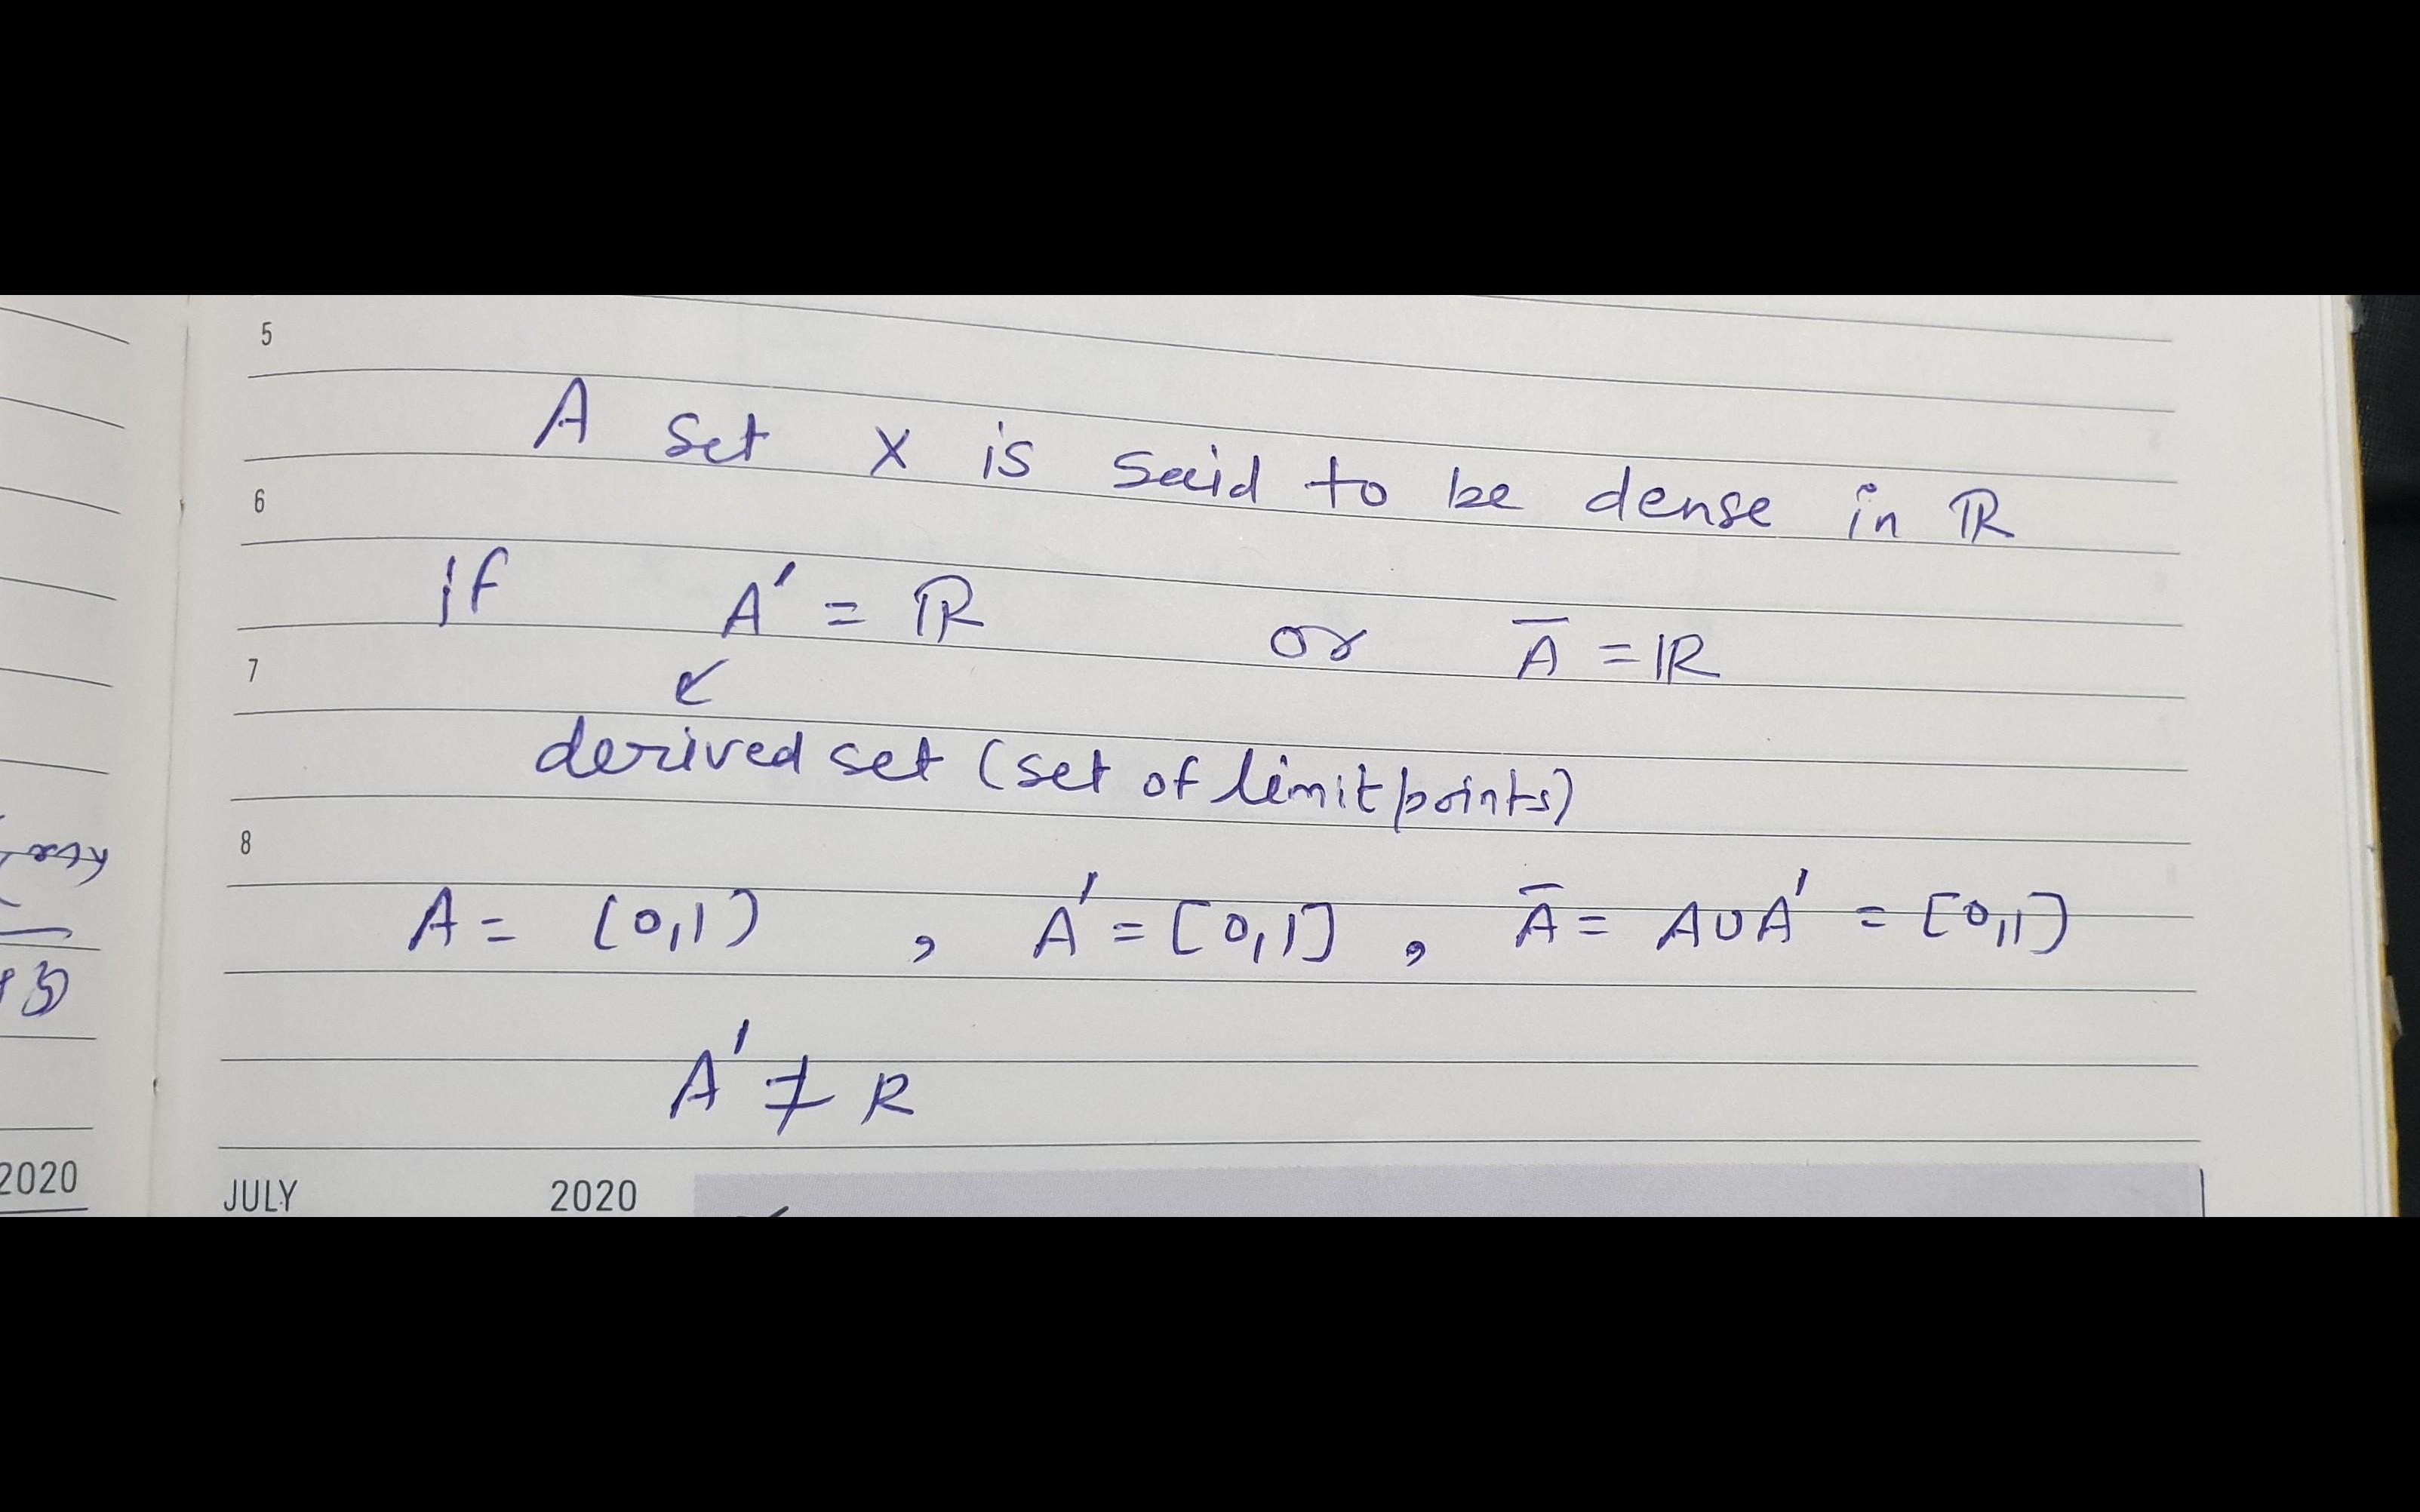 5
A set X is said to be dense in ℝ
6
if A' = ℝ or A̅ = ℝ
7
↙
derived set (set of limit points)
8
A = (0,1) , A' = [0,1] , A̅ = A∪A' = [0,1]
A' ≠ R
2020
JULY 2020